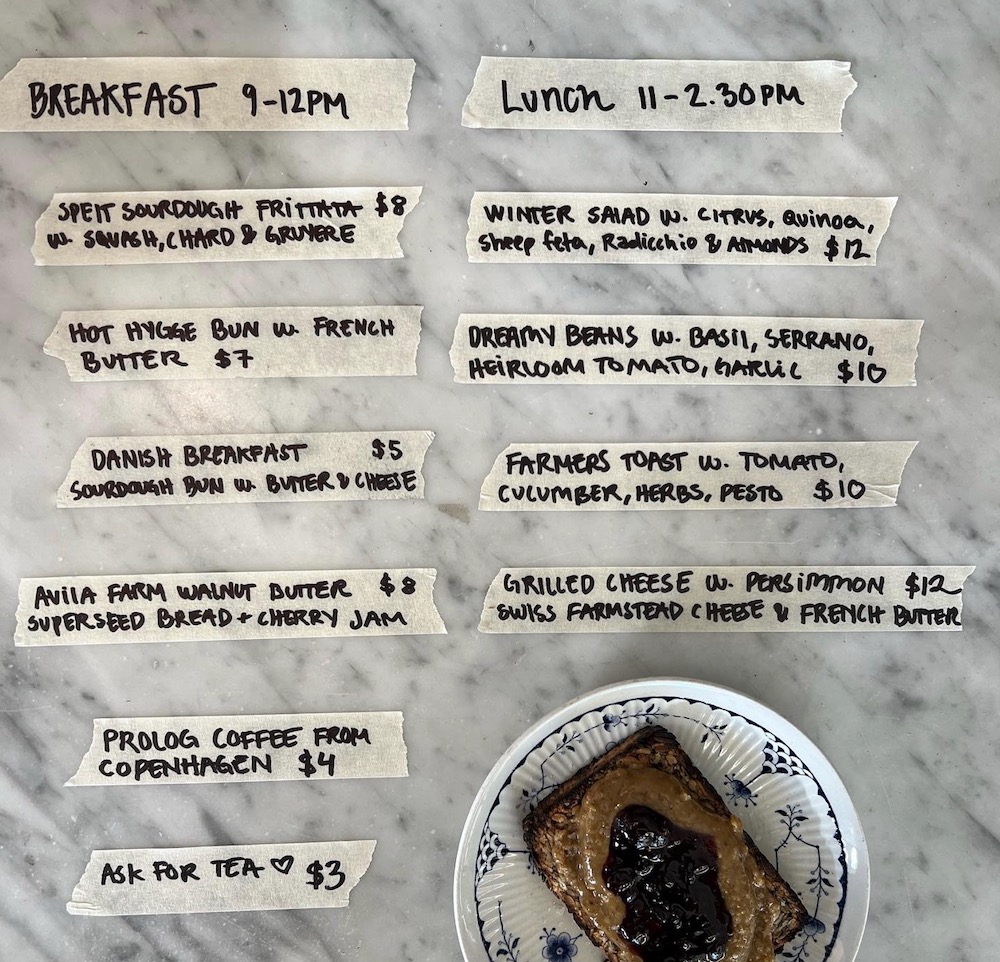 BREAKFAST 9-12PM
SPELT SOURDOUGH FRITTATA $8
W. SQUASH, CHARD & GRUYERE
HOT HYGGE BUN W. FRENCH
BUTTER $7
DANISH BREAKFAST $5
SOURDOUGH BUN W. BUTTER & CHEESE
AVILA FARM WALNUT BUTTER $8
SUPERSEED BREAD + CHERRY JAM
PROLOG COFFEE FROM
COPENHAGEN $4
ASK FOR TEA ♡ $3
Lunch 11-2.30PM
WINTER SALAD W. CITRUS, Quinoa,
Sheep feta, Radicchio & ALMONDS $12
DREAMY BEANS W. BASIL, SERRANO,
HEIRLOOM TOMATO, GARLIC $10
FARMERS TOAST W. TOMATO,
CUCUMBER, HERBS, PESTO $10
GRILLED CHEESE W. PERSIMMON $12
SWISS FARMSTEAD CHEESE & FRENCH BUTTER